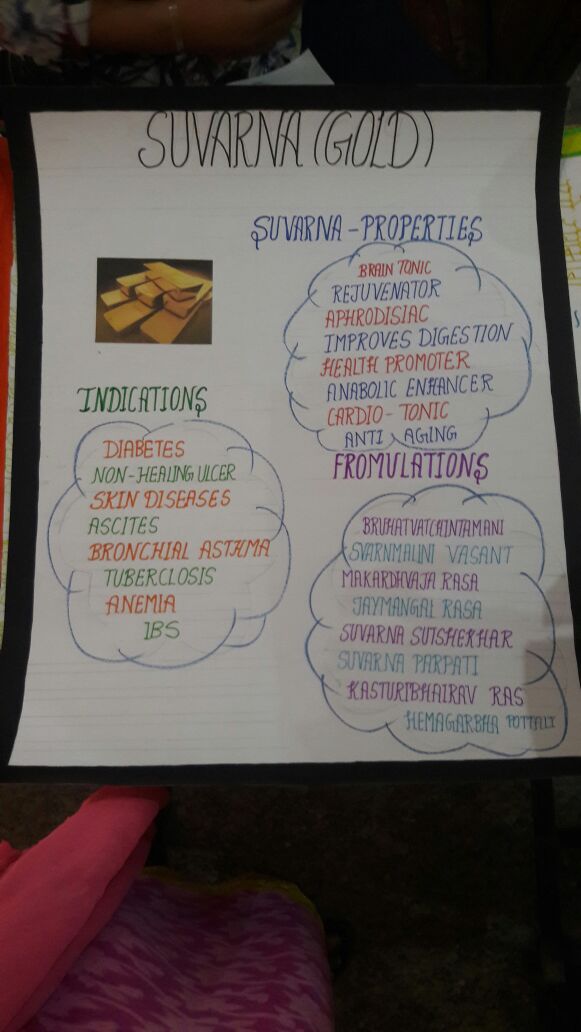 SUVARNA (GOLD)
SUVARNA - PROPERTIES
BRAIN TONIC
REJUVENATOR
APHRODISIAC
IMPROVES DIGESTION
HEALTH PROMOTER
ANABOLIC ENHANCER
CARDIO - TONIC
ANTI AGING
INDICATIONS
DIABETES
NON-HEALING ULCER
SKIN DISEASES
ASCITES
BRONCHIAL ASTHMA
TUBERCLOSIS
ANEMIA
IBS
FROMULATIONS
BRUHATVATCHINTAMANI
SVARNMALINI VASANT
MAKARDHVAJA RASA
JAYMANGAL RASA
SUVARNA SUTSHEKHAR
SUVARNA PARPATI
KASTURIBHAIRAV RAS
HEMAGARBHA POTTALI